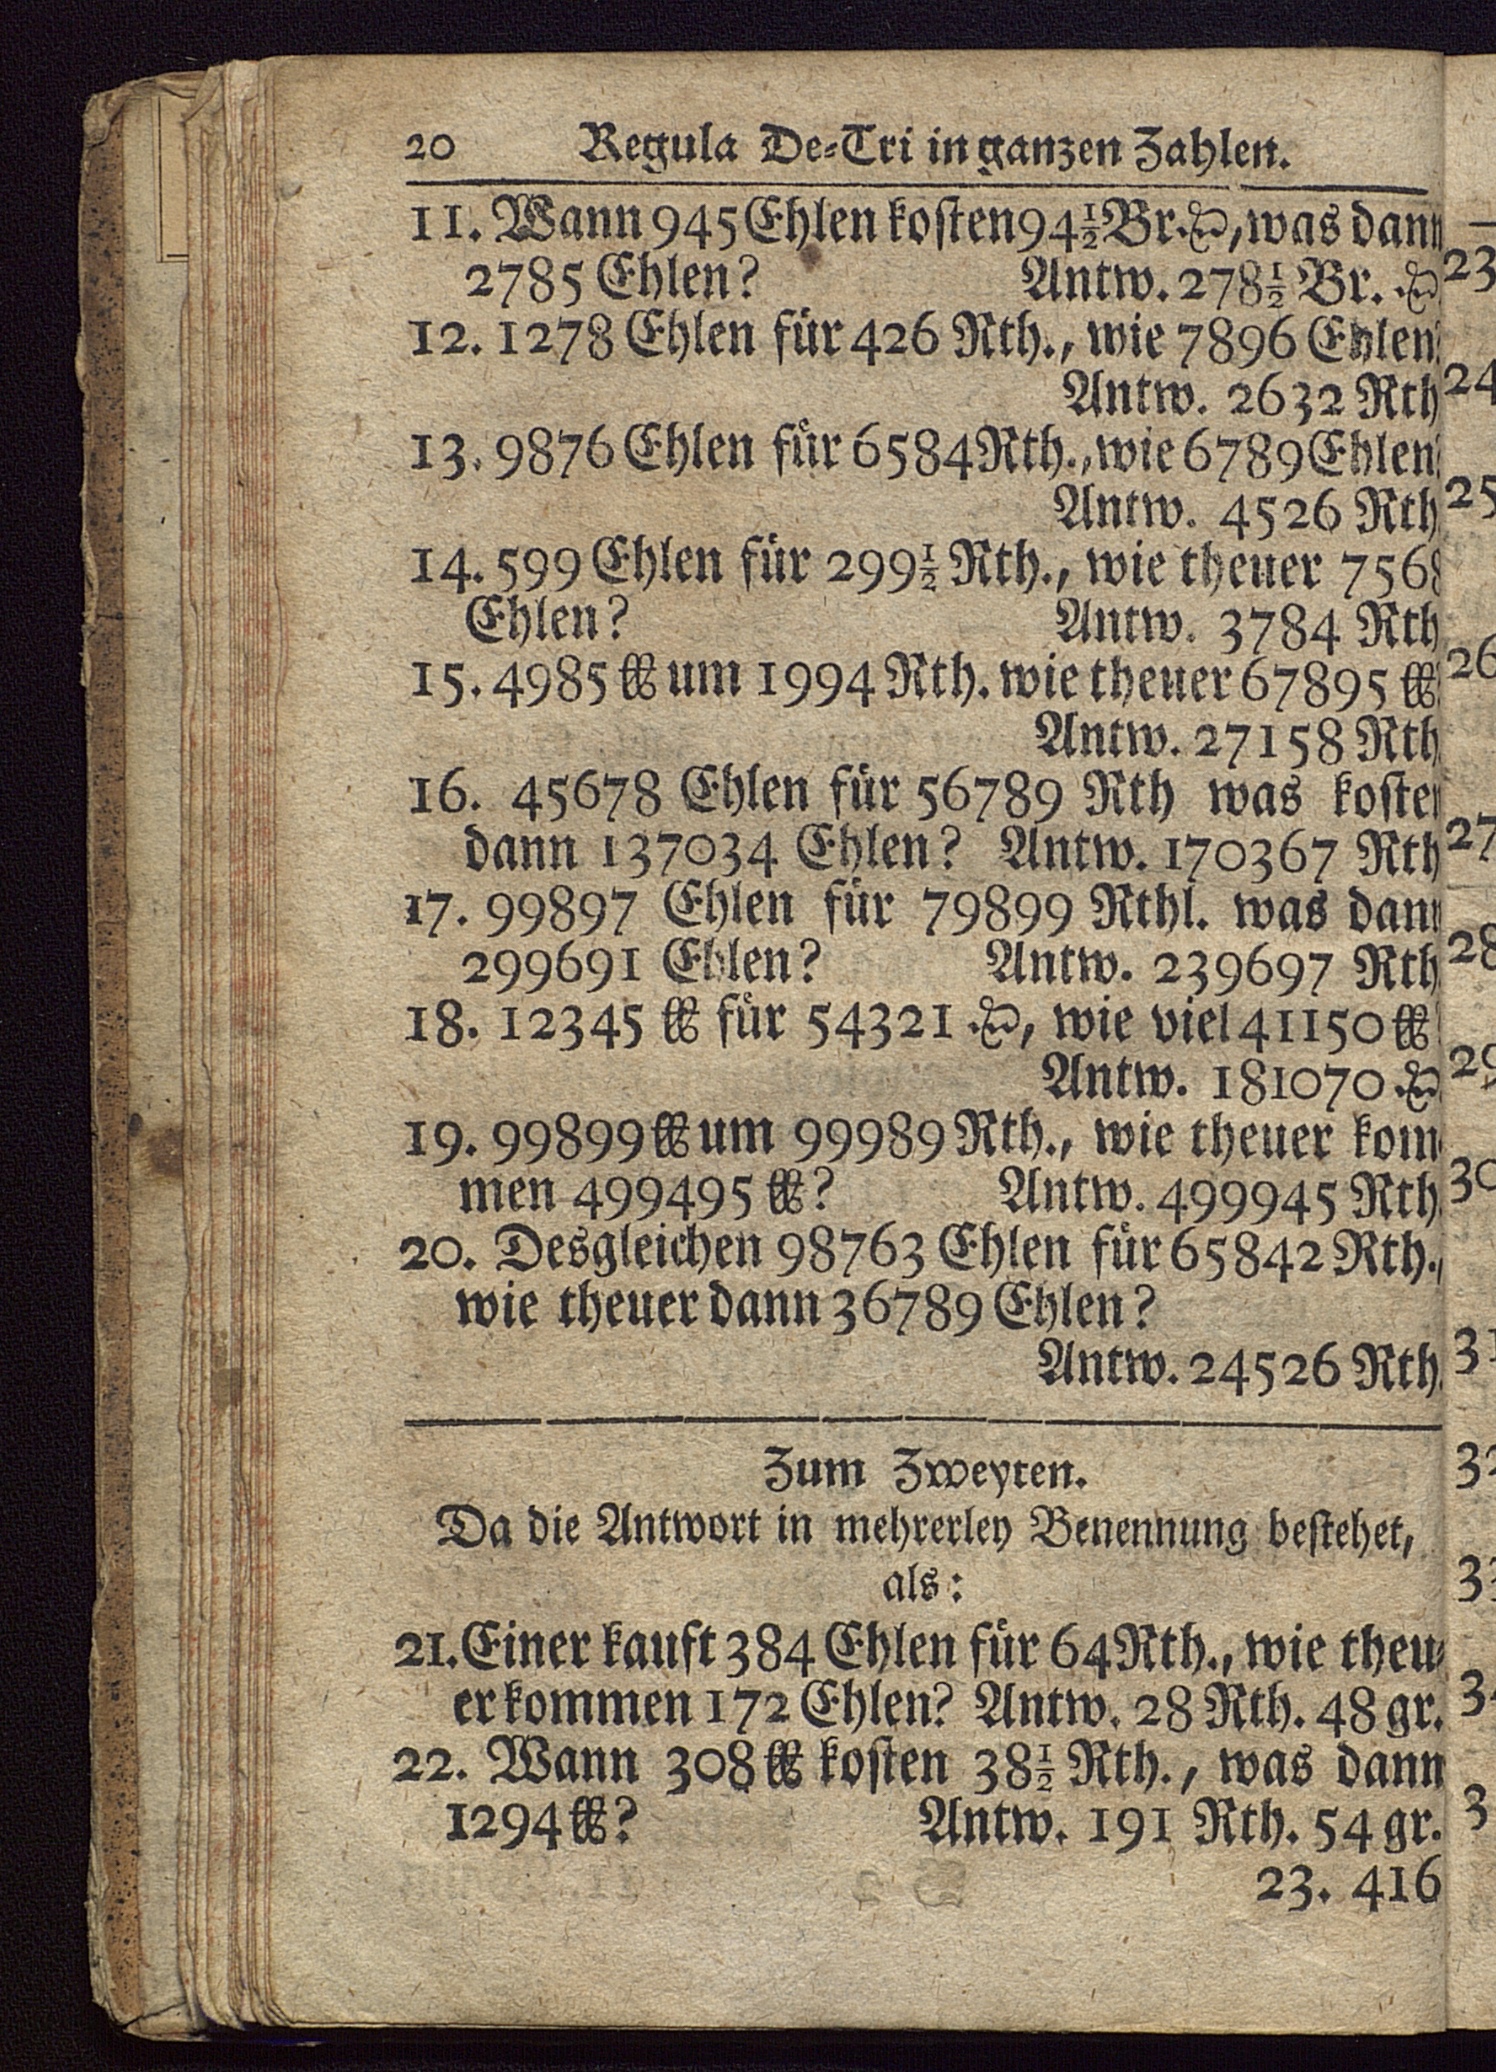 20 Regula De-Tri in ganzen Zahlen.
11. Wann 945 Ehlen kosten 94½ Br. , was dann
2785 Ehlen? Antw. 278½ Br.
12. 1278 Ehlen für 426 Rth., wie 7896 Ehlen?
Antw. 2632 Rth
13. 9876 Ehlen für 6584 Rth., wie 6789 Ehlen?
Antw. 4526 Rth
14. 599 Ehlen für 299½ Rth., wie theuer 7568
Ehlen? Antw. 3784 Rth
15. 4985 ℔ um 1994 Rth. wie theuer 67895 ℔
Antw. 27158 Rth
16. 45678 Ehlen für 56789 Rth was kosten
dann 137034 Ehlen? Antw. 170367 Rth
17. 99897 Ehlen für 79899 Rthl. was dann
299691 Ehlen? Antw. 239697 Rth
18. 12345 ℔ für 54321 , wie viel 41150 ℔
Antw. 181070
19. 99899 ℔ um 99989 Rth., wie theuer kom
men 499495 ℔? Antw. 499945 Rth.
20. Desgleichen 98763 Ehlen für 65842 Rth.,
wie theuer dann 36789 Ehlen?
Antw. 24526 Rth.
Zum Zweyten.
Da die Antwort in mehrerley Benennung bestehet,
als:
21. Einer kauft 384 Ehlen für 64 Rth., wie theu-
er kommen 172 Ehlen? Antw. 28 Rth. 48 gr.
22. Wann 308 ℔ kosten 38½ Rth., was dann
1294 ℔? Antw. 191 Rth. 54 gr.
23. 416
23
24
25
26
27
28
29
30
31